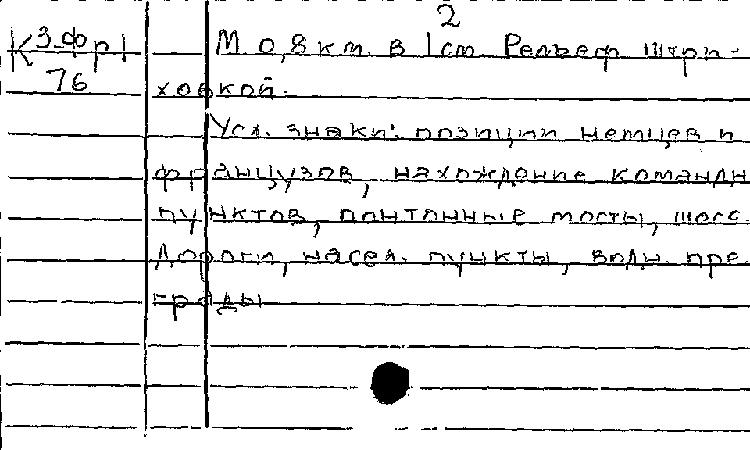 2
К 3-фр 1 М 0,8 км. в 1 см Рельеф штри-
76 ховкой.
Усл. знаки: позиции немцев и
французов, нахождение командн
пунктов, понтонные мосты, шосс.
дороги, насел. пункты, водн. пре-
грады